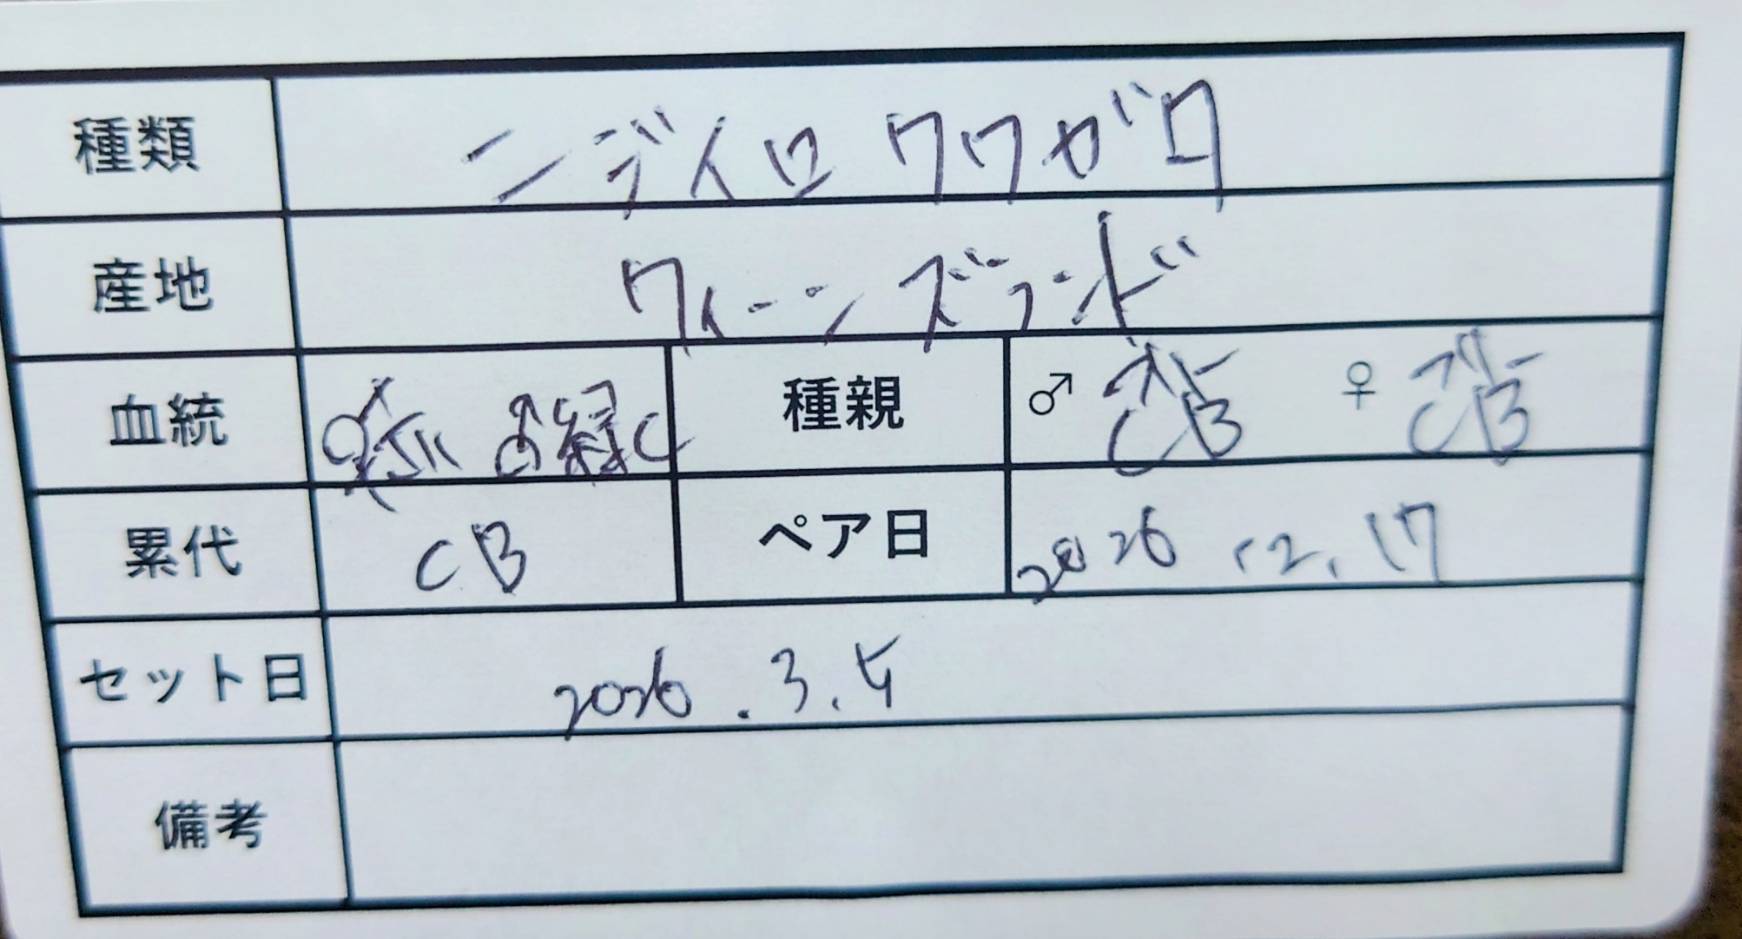 種類 ニジイロクワガタ
産地 クィーンズランド
血統
種親 ♂ CB ♀ CB
累代 CB ペア日 2026.2.17
セット日 2026.3.5
備考